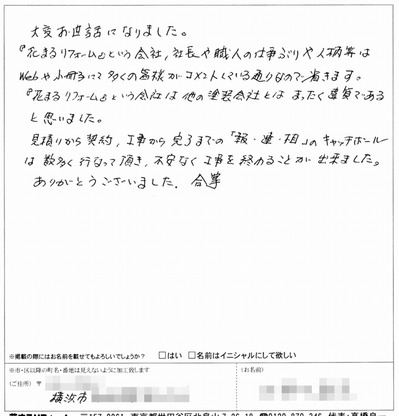 大変お世話になりました。
『花まるリフォーム』という会社，社長や職人の仕事ぶりや人柄等は
Webや小冊子にて多くの皆様がコメントしている通りなので省きます。
『花まるリフォーム』という会社は他の塗装会社とはまったく異質である
と思いました。
見積りから契約，工事から完了までの「報・連・相」のキャッチボール
は数多く行なって頂き，不安なく工事を終めることが出来ました。
ありがとうございました． 合掌
※掲載の際にはお名前を載せてもよろしいでしょうか？ □はい □名前はイニシャルにして欲しい
※市・区以降の町名・番地は見えないように加工致します
（ご住所） 〒
横浜市
（お名前）